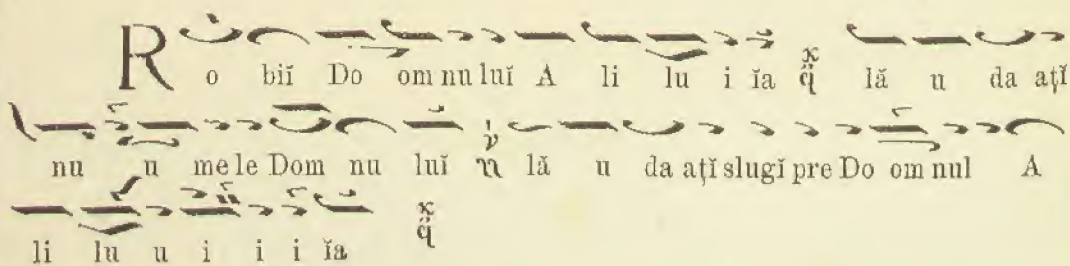 R o biĭ Do om nu luĭ A li lu i ĭa lă u da ațĭ
nu u me le Dom nu luĭ lă u da ațĭ slugĭ pre Do om nul A
li lu u i i i ĭa